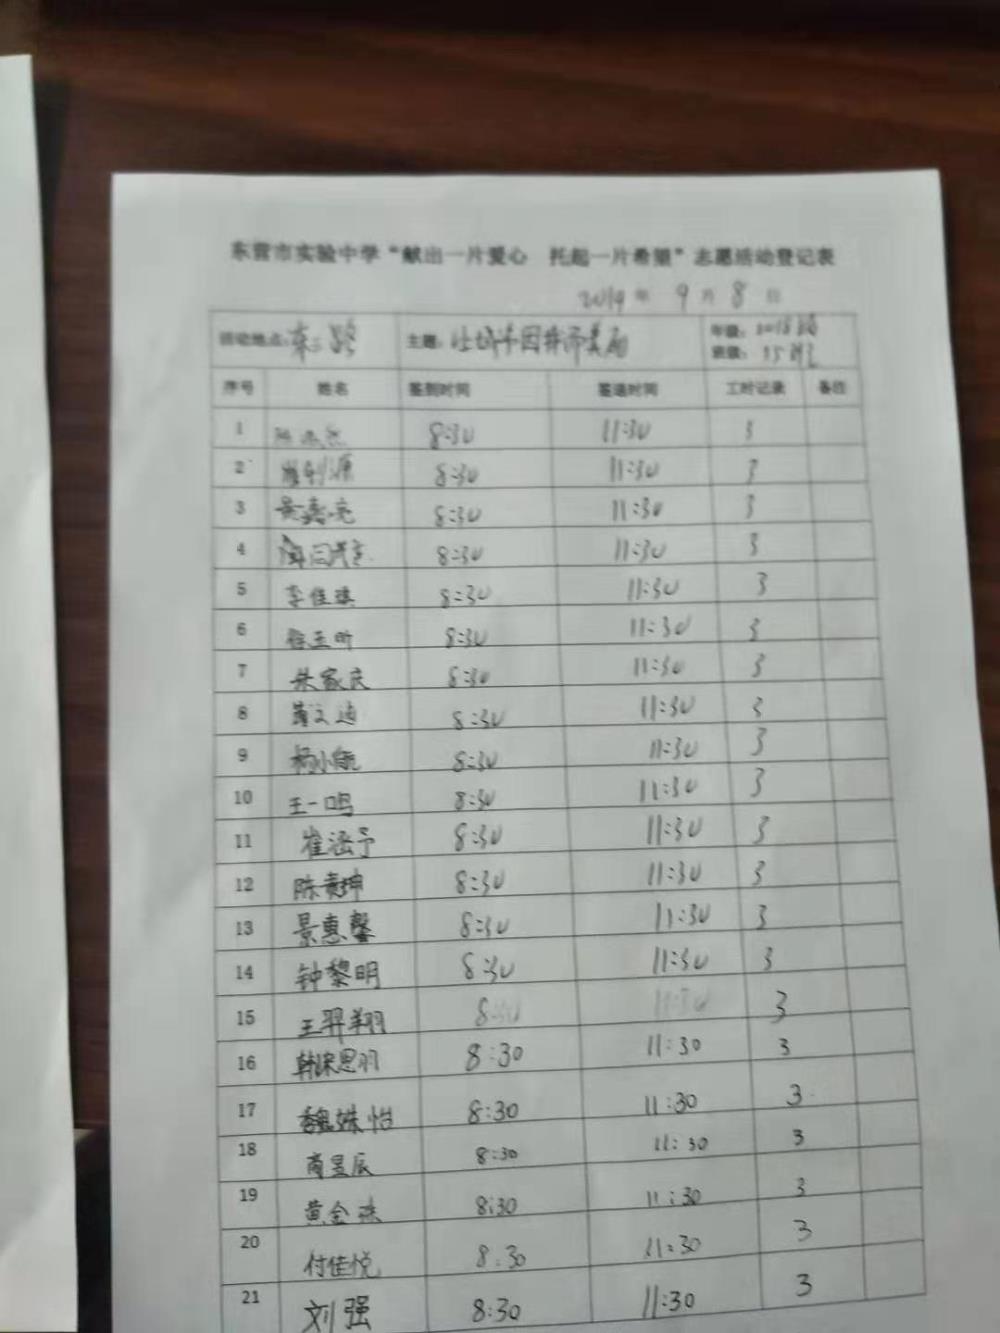 东营市实验中学“献出一片爱心 托起一片希望”志愿活动登记表
2019年 9月 8日
活动地点: 东二路 主题: 年级: 2018级
班级: 15班
序号 姓名 签到时间 签退时间 工时记录 备注
1 8:30 11:30 3
2 8:30 11:30 3
3 8:30 11:30 3
4 8:30 11:30 3
5 李佳琪 8:30 11:30 3
6 徐玉昕 8:30 11:30 3
7 朱家庆 8:30 11:30 3
8 8:30 11:30 3
9 8:30 11:30 3
10 王一鸣 8:30 11:30 3
11 崔涵予 8:30 11:30 3
12 8:30 11:30 3
13 景惠馨 8:30 11:30 3
14 钟黎明 8:30 11:30 3
15 王羿翔 8:30 11:30 3
16 8:30 11:30 3
17 魏姝怡 8:30 11:30 3
18 商昱辰 8:30 11:30 3
19 8:30 11:30 3
20 付佳悦 8:30 11:30 3
21 刘强 8:30 11:30 3